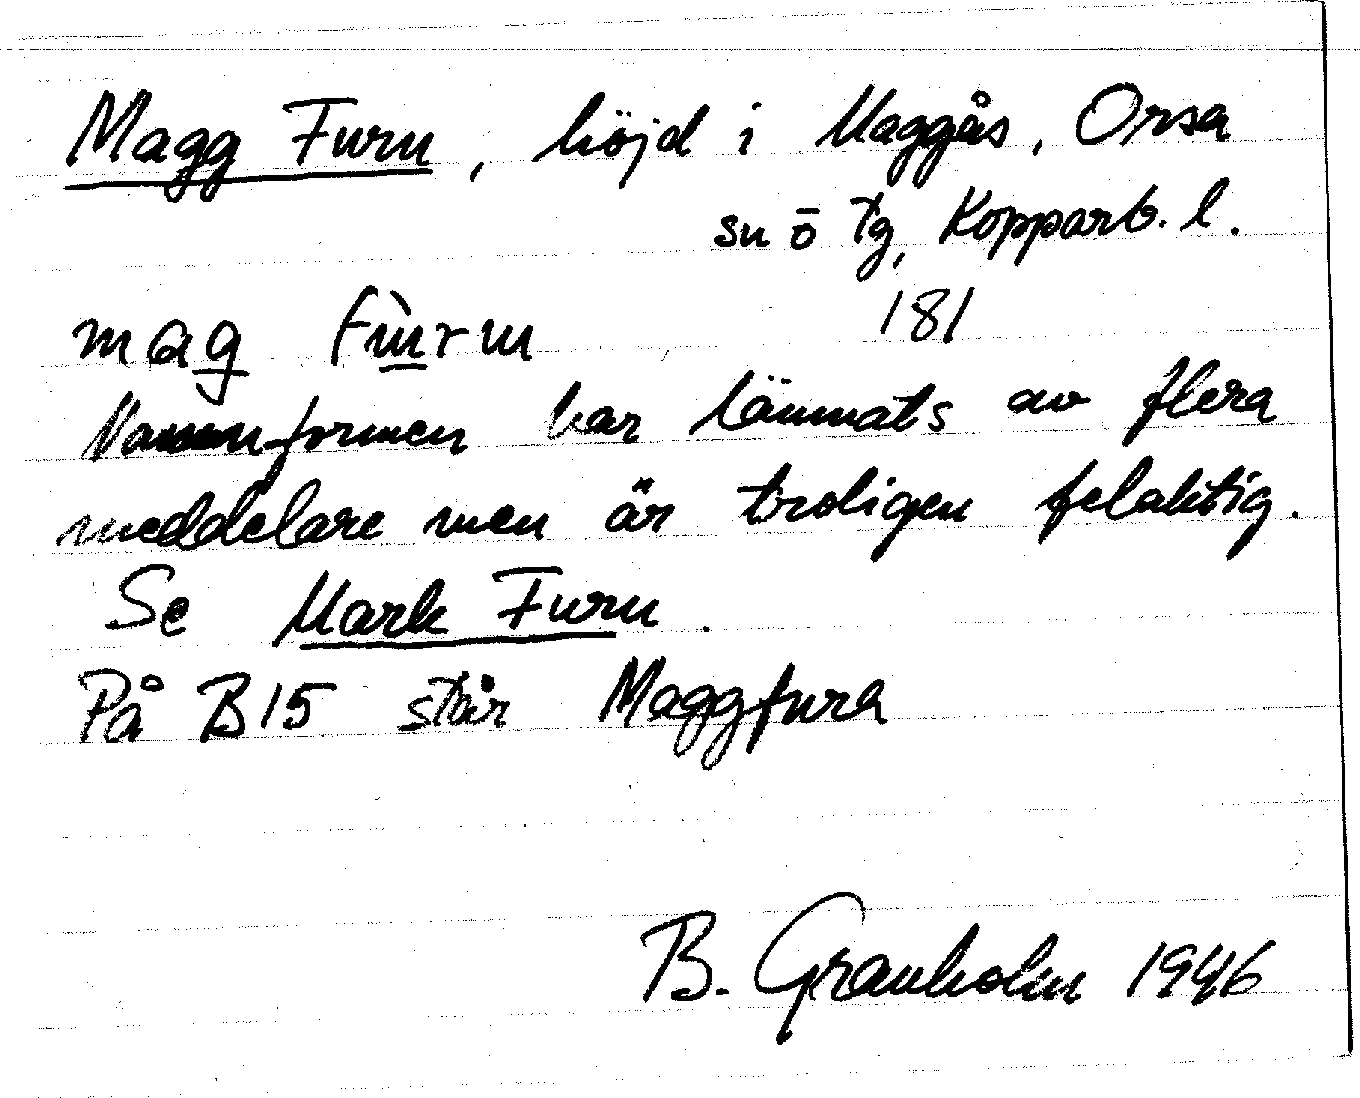 Magg Furu, höjd i Maggås, Orsa
sn ö Tg, Kopparb. l.
mag fùru 181
Namnformen har lämnats av flera
meddelare men är troligen felaktig.
Se Mark Furu.
På B15 står Maggfura
B. Granholm 1946